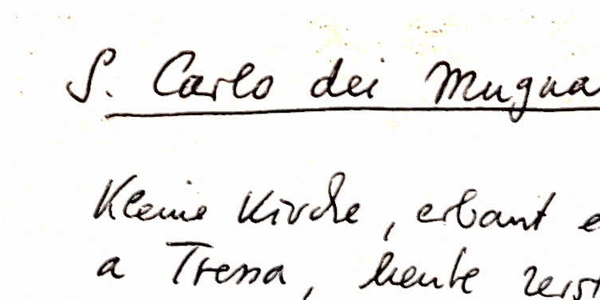 S. Carlo dei Mugna
Kleine Kirche, erbaut e
a Tressa, heute zerst